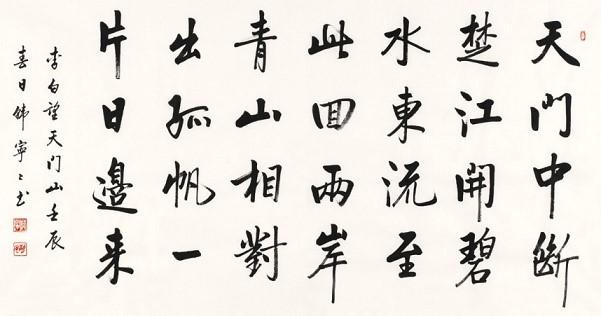 天門中斷
楚江開碧
水東流至
此回兩岸
青山相對
出孤帆一
片日邊来
李白望天門山壬辰
春日韓寧〻书